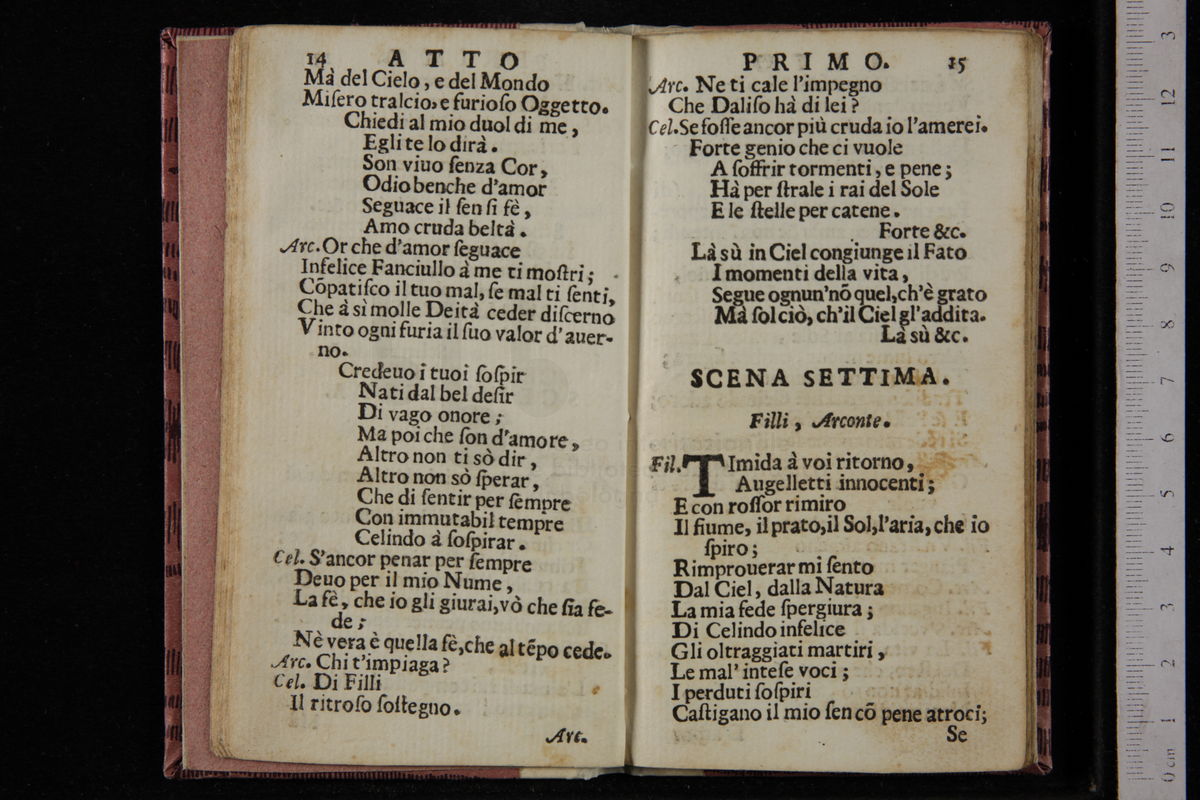 14 ATTO
Mà del Cielo, e del Mondo
Miſero tralcio, e furioſo Oggetto.
Chiedi al mio duol di me,
Egli te lo dirà.
Son viuo ſenza Cor,
Odio benche d'amor
Seguace il ſen ſi fè,
Amo cruda beltà.
Arc. Or che d'amor ſeguace
Infelice Fanciullo à me ti moſtri;
Cõpatiſco il tuo mal, ſe mal ti ſenti,
Che à sì molle Deità ceder diſcerno
Vinto ogni furia il ſuo valor d'auer-
no.
Credeuo i tuoi ſoſpir
Nati dal bel deſir
Di vago onore;
Ma poi che ſon d'amore,
Altro non ti sò dir,
Altro non sò ſperar,
Che di ſentir per ſempre
Con immutabil tempre
Celindo à ſoſpirar.
Cel. S'ancor penar per ſempre
Deuo per il mio Nume,
La fè, che io gli giurai, vò che ſia fe-
de;
Nè vera è quella fè, che al tẽpo cede.
Arc. Chi t'impiaga?
Cel. Di Filli
Il ritroſo ſoſtegno.
Arc.
PRIMO. 15
Arc. Ne ti cale l'impegno
Che Daliſo hà di lei?
Cel. Se foſſe ancor più cruda io l'amerei.
Forte genio che ci vuole
A ſoffrir tormenti, e pene;
Hà per ſtrale i rai del Sole
E le ſtelle per catene.
Forte &c.
Là sù in Ciel congiunge il Fato
I momenti della vita,
Segue ognun'nõ quel, ch'è grato
Mà ſol ciò, ch'il Ciel gl'addita.
Là sù &c.
SCENA SETTIMA.
Filli, Arconte.
Fil. TImida à voi ritorno,
Augelletti innocenti;
E con roſſor rimiro
Il fiume, il prato, il Sol, l'aria, che io
ſpiro;
Rimprouerar mi ſento
Dal Ciel, dalla Natura
La mia fede ſpergiura;
Di Celindo infelice
Gli oltraggiati martiri,
Le mal' inteſe voci;
I perduti ſoſpiri
Caſtigano il mio ſen cõ pene atroci;
Se
0 cm 1 2 3 4 5 6 7 8 9 10 11 12 13